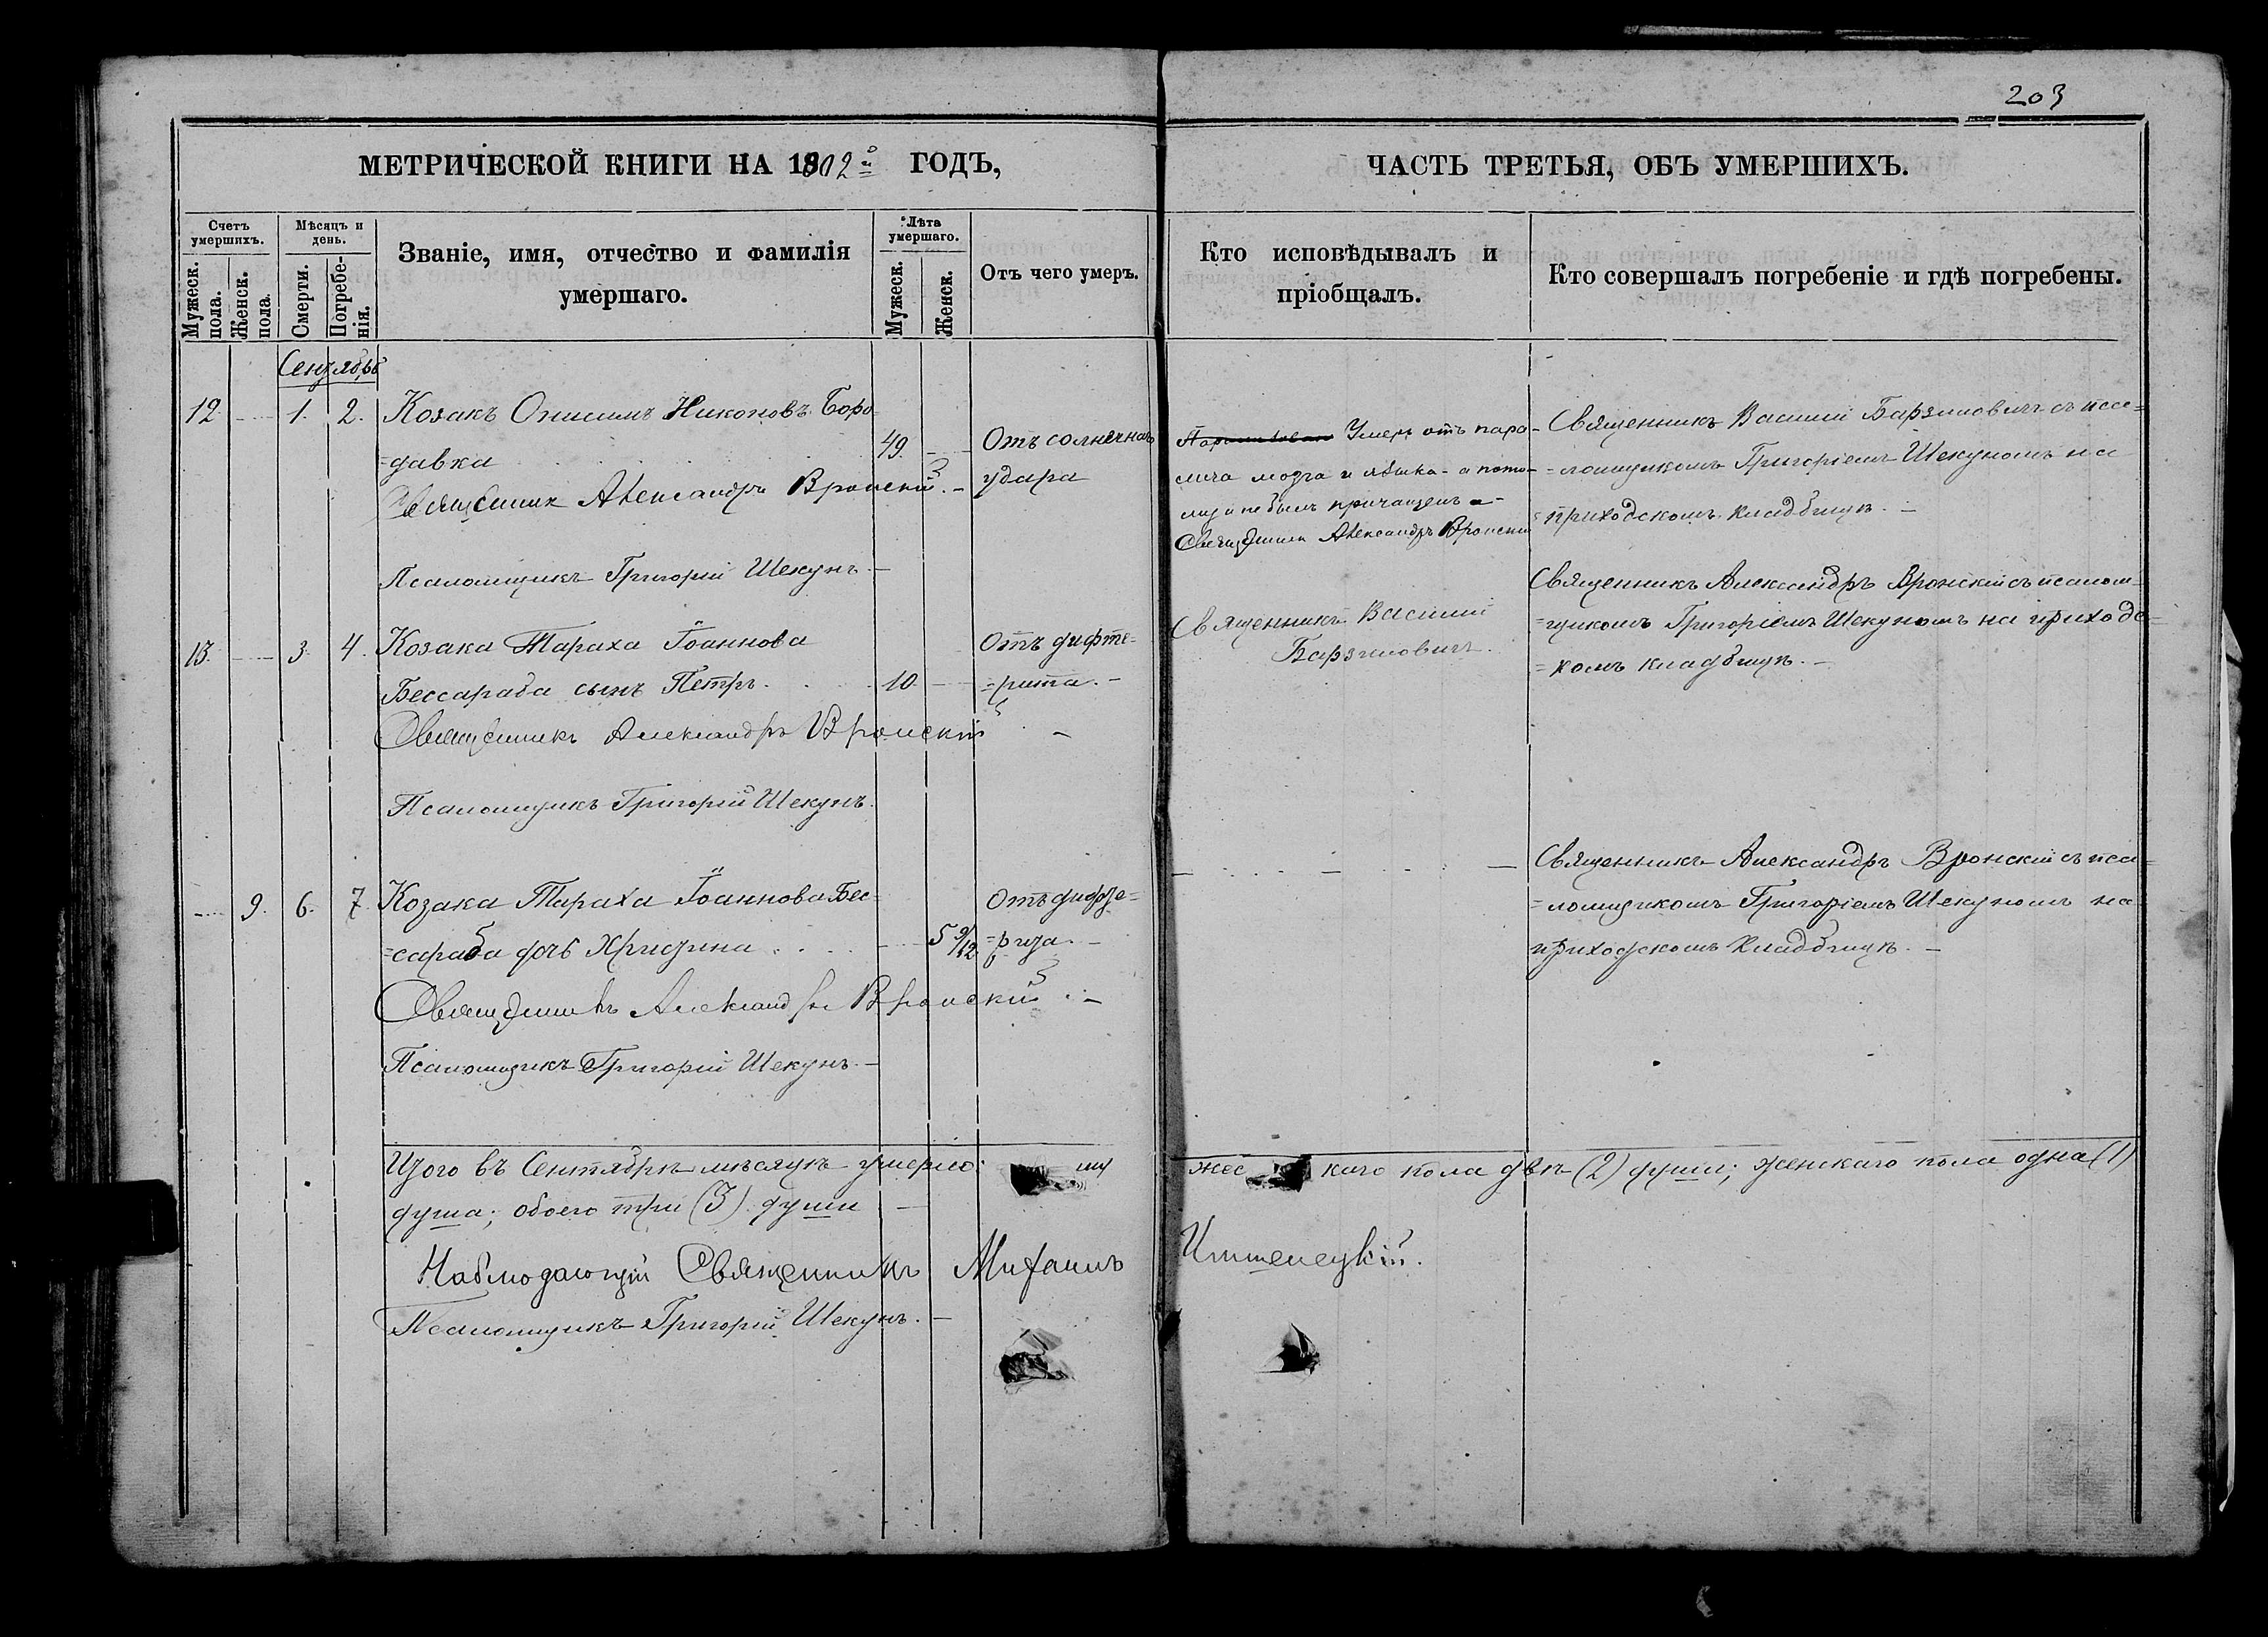 203
МЕТРИЧЕСКОЙ КНИГИ НА 1902й ГОДЪ,
ЧАСТЬ ТРЕТЬЯ, ОБЪ УМЕРШИХЪ.
Счетъ умершихъ.
Мужеск. пола.
Женск. пола.
Мѣсяцъ и день.
Смерти.
Погребенія.
Званіе, имя, отчество и фамилія
умершаго.
Лѣта умершаго.
Мужеск.
Женск.
Отъ чего умеръ.
Кто исповѣдывалъ и
пріобщалъ.
Кто совершалъ погребеніе и гдѣ погребены.
Сентябрь
12. 1. 2. Козакъ Онисимъ Никоновъ Боро
=давка 49.
Отъ солнечнаго
удара
Священник Александръ Вронский. -
Псаломщикъ Григорій Шекунъ. -
Умеръ отъ пара-
лича мозга и языка - а пото-
му и не былъ причащенъ -
Священник Александръ Вронский
Священникъ Василій Барзиловичъ съ пса=
=ломщикомъ Григоріемъ Шекуномъ на
приходскомъ кладбищѣ. -
13. 3. 4. Козака Тараха Іоаннова
Бессараба сынъ Петръ. 10.
Отъ дифте=
=рита. -
Священникъ Александръ Вронскій -
Псаломщикъ Григорій Шекунъ.
Священникъ Василій
Барзиловичъ.
Священникъ Александръ Вронскій съ псалом=
=щикомъ Григоріемъ Шекуномъ на приходс=
=комъ кладбищѣ. -
9. 6. 7. Козака Тараха Іоаннова Бес=
=сараба дочь Христина 5 9/12
Отъ дифте=
=рита. -
Священникъ Александръ Вронский. -
Псаломщикъ Григорій Шекунъ. -
Священникъ Александръ Вронскій съ пса=
=ломщикомъ Григоріемъ Шекуномъ на
приходскомъ кладбищѣ. -
Итого въ Сентябрѣ мѣсяцѣ умерло: мужескаго пола двѣ (2) души; женскаго пола одна (1)
душа; обоего три (3) души -
Наблюдающій Священникъ Михаилъ
Псаломщикъ Григорій Шекунъ. -